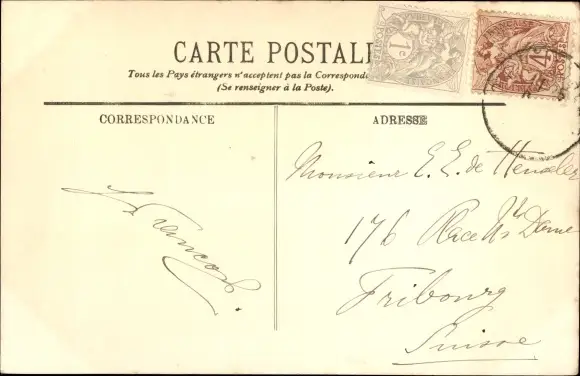 CARTE POSTAL
Tous les Pays étrangers n'acceptent pas la Correspond
(Se renseigner à la Poste).
CORRESPONDANCE
ADRESSE
1c
4
Monsieur E. E. de Henseler
176 Place Nᵗʳᵉ Dame
Fribourg
Suisse